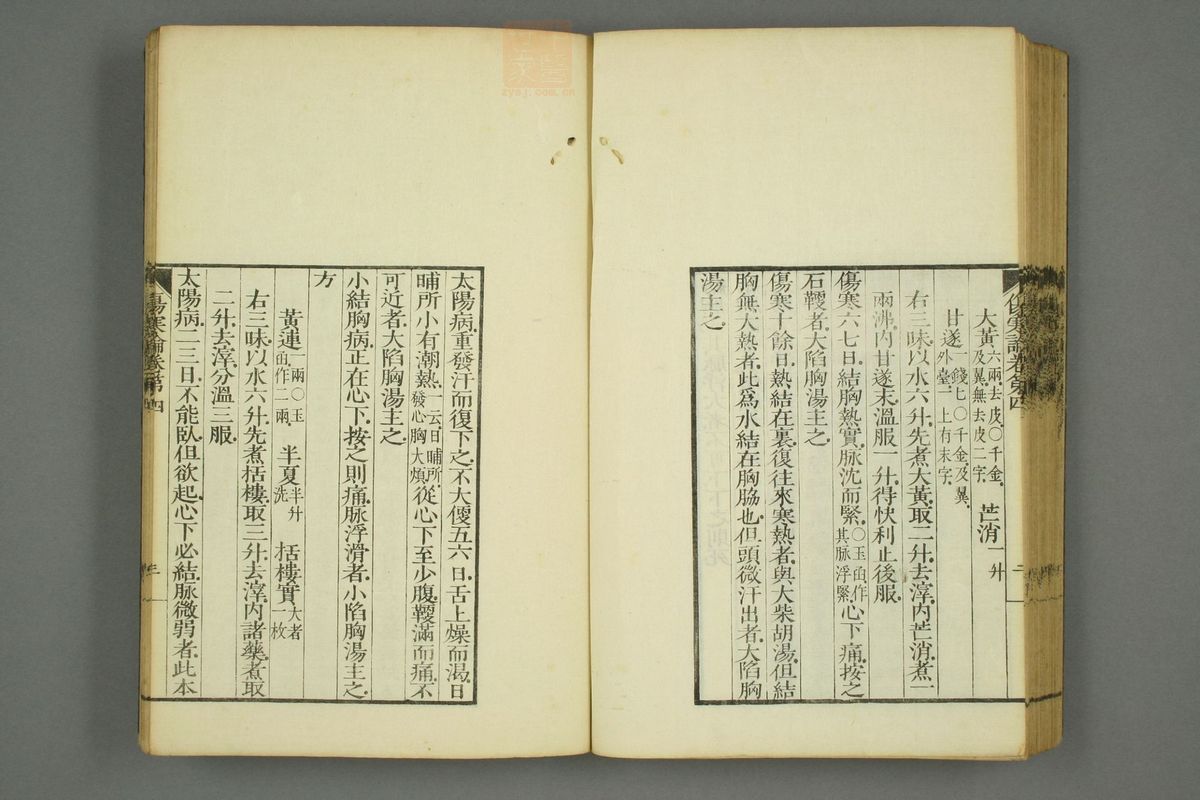 傷寒論卷第四
大黃六兩去皮○千金及翼無去皮二字 芒消一升
甘遂一錢匕○千金及翼外臺一上有末字
右三味以水六升先煮大黃取二升去滓內芒消煮一
兩沸內甘遂末溫服一升得快利止後服
傷寒六七日結胸熱實脉沈而緊○玉函作其脉浮緊心下痛按之
石鞕者大陷胸湯主之
傷寒十餘日熱結在裏復往來寒熱者與大柴胡湯但結
胸無大熱者此爲水結在胸脇也但頭微汗出者大陷胸
湯主之
太陽病重發汗而復下之不大便五六日舌上燥而渴日
晡所小有潮熱一云日晡所發心胸大煩從心下至少腹鞕滿而痛不
可近者大陷胸湯主之
小結胸病正在心下按之則痛脉浮滑者小陷胸湯主之
方
黃連一兩○玉函作二兩 半夏半升洗 栝樓實大者一枚
右三味以水六升先煮栝樓取三升去滓內諸藥煮取
二升去滓分溫三服
太陽病二三日不能臥但欲起心下必結脉微弱者此本
傷寒論卷第四
三
zysj.com.cn